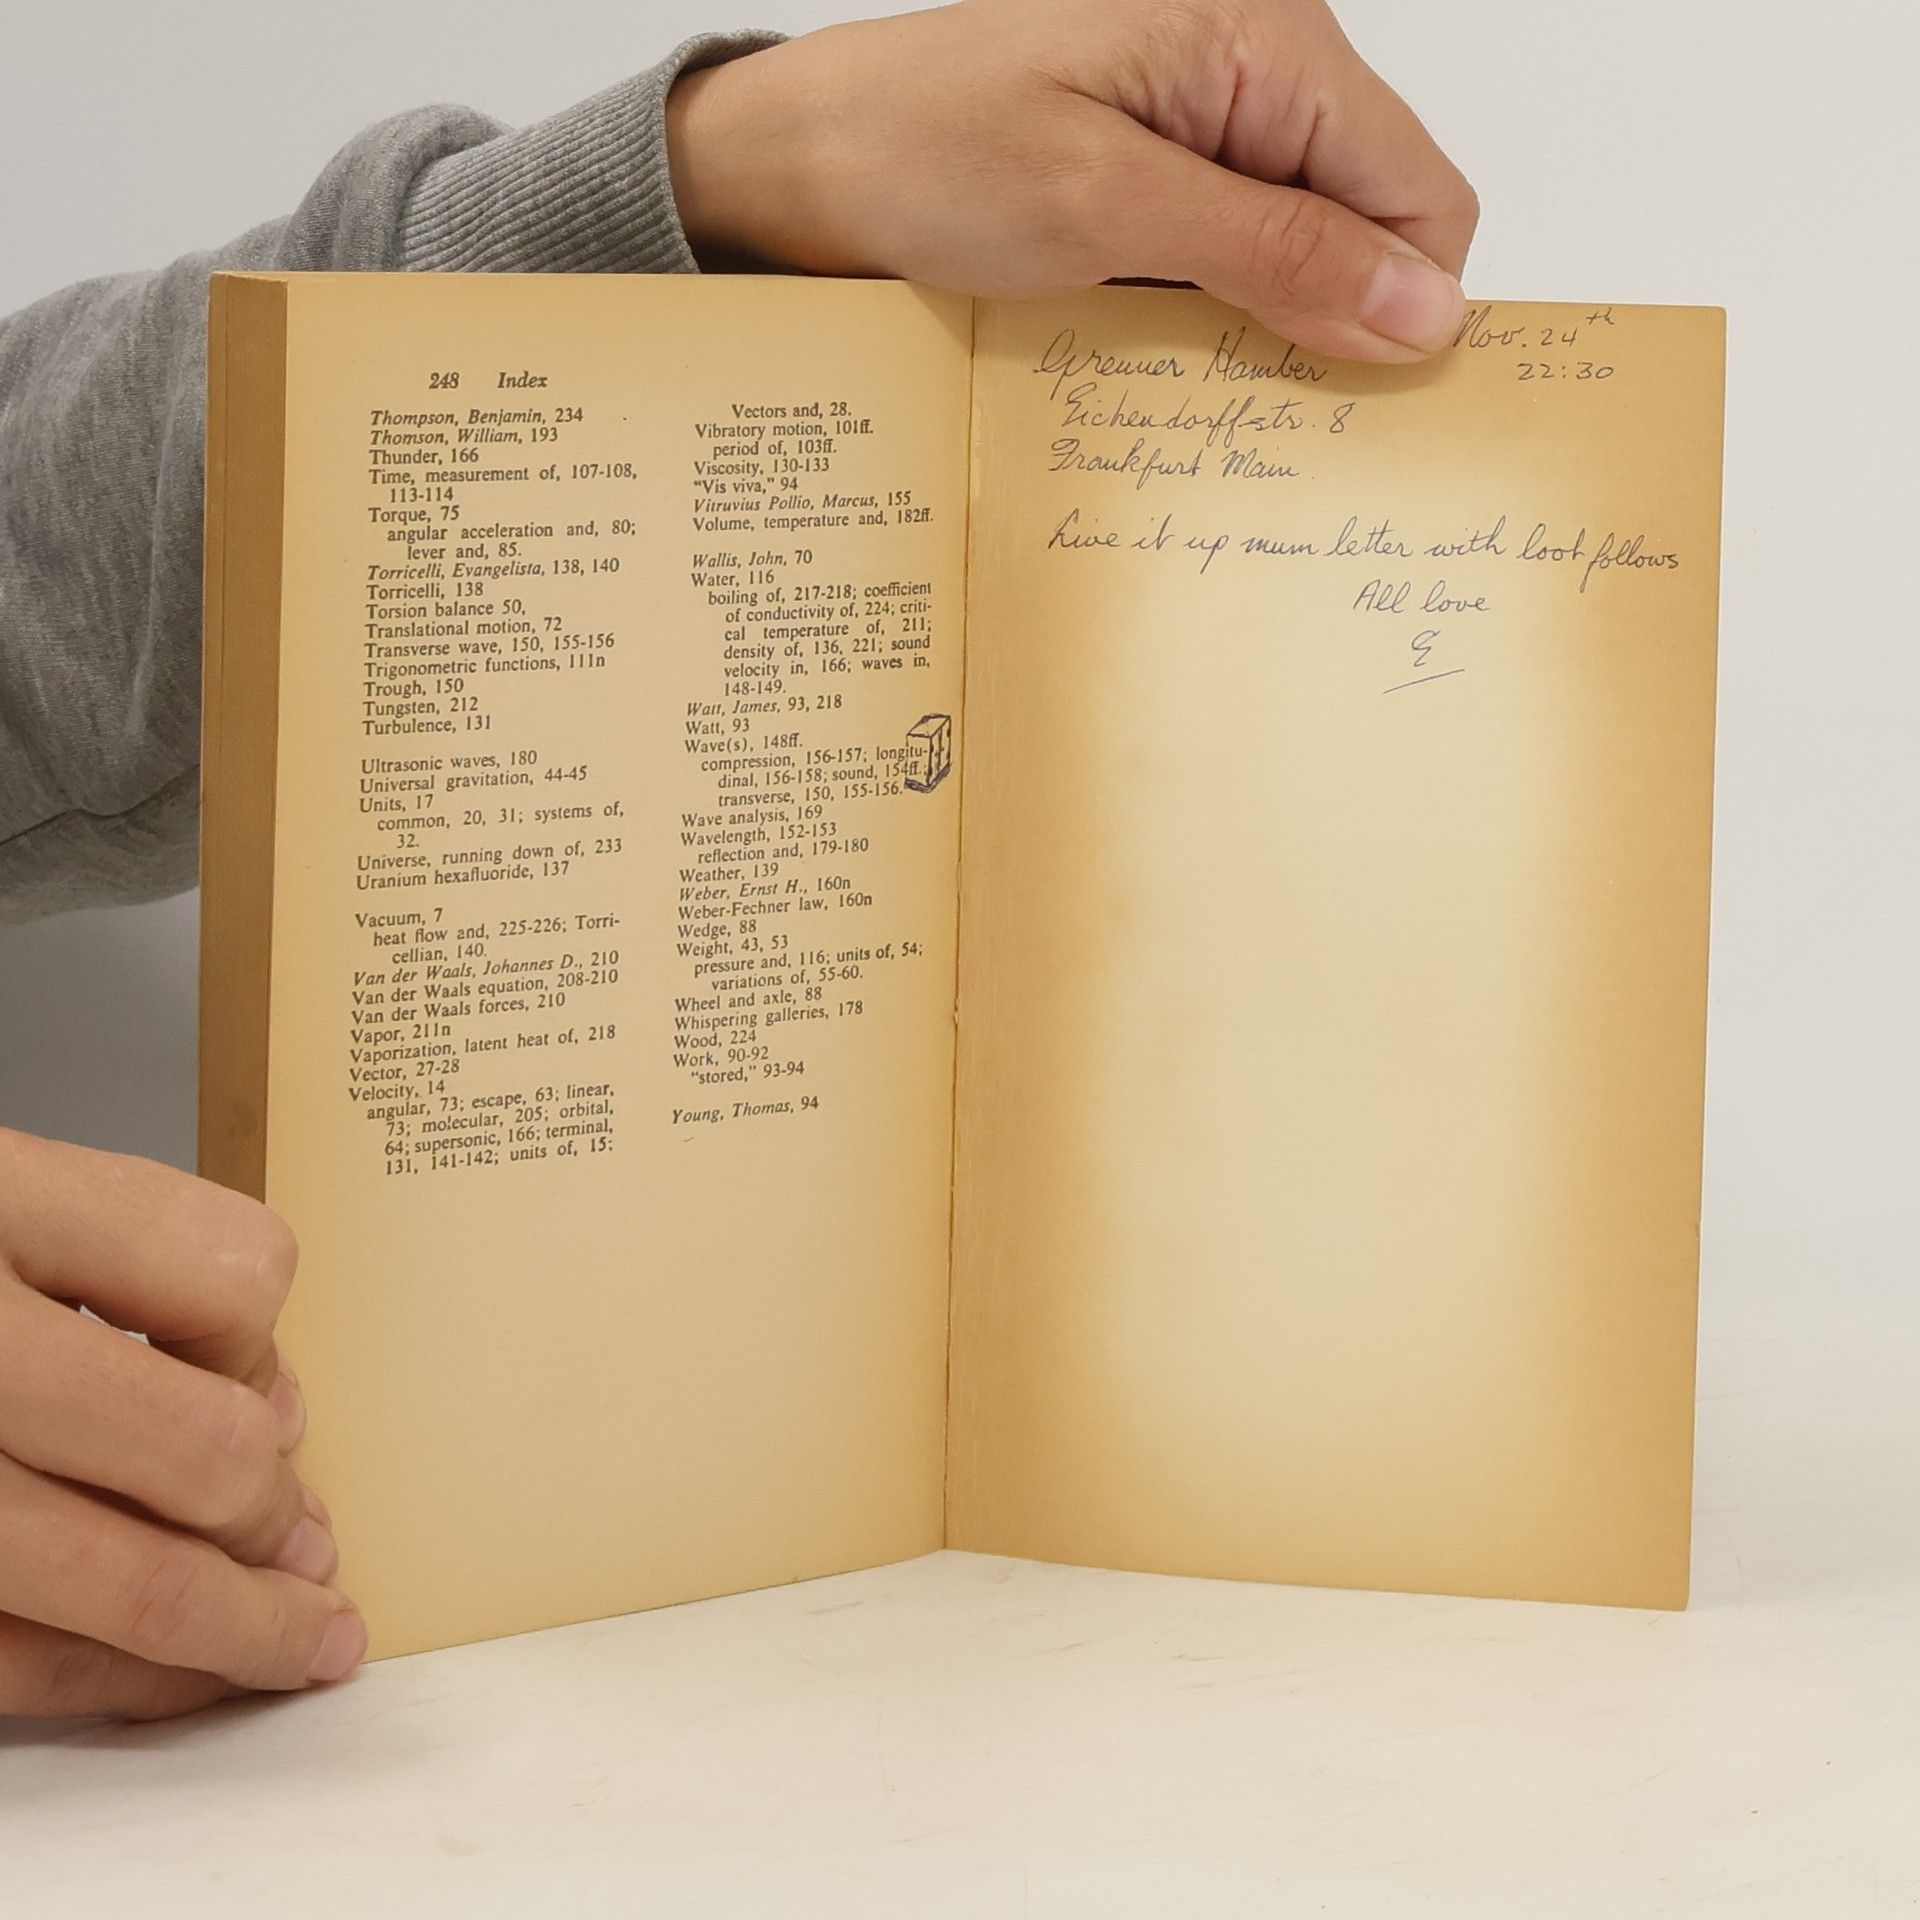 248 Index
Thompson, Benjamin, 234
Thomson, William, 193
Thunder, 166
Time, measurement of, 107-108,
113-114
Torque, 75
angular acceleration and, 80;
lever and, 85.
Torricelli, Evangelista, 138, 140
Torricelli, 138
Torsion balance 50,
Translational motion, 72
Transverse wave, 150, 155-156
Trigonometric functions, 111n
Trough, 150
Tungsten, 212
Turbulence, 131
Ultrasonic waves, 180
Universal gravitation, 44-45
Units, 17
common, 20, 31; systems of,
32.
Universe, running down of, 233
Uranium hexafluoride, 137
Vacuum, 7
heat flow and, 225-226; Torri-
cellian, 140.
Van der Waals, Johannes D., 210
Van der Waals equation, 208-210
Van der Waals forces, 210
Vapor, 211n
Vaporization, latent heat of, 218
Vector, 27-28
Velocity, 14
angular, 73; escape, 63; linear,
73; molecular, 205; orbital,
64; supersonic, 166; terminal,
131, 141-142; units of, 15;
Vectors and, 28.
Vibratory motion, 101ff.
period of, 103ff.
Viscosity, 130-133
"Vis viva," 94
Vitruvius Pollio, Marcus, 155
Volume, temperature and, 182ff.
Wallis, John, 70
Water, 116
boiling of, 217-218; coefficient
of conductivity of, 224; criti-
cal temperature of, 211;
density of, 136, 221; sound
velocity in, 166; waves in,
148-149.
Watt, James, 93, 218
Watt, 93
Wave(s), 148ff.
compression, 156-157; longitu-
dinal, 156-158; sound, 154ff.;
transverse, 150, 155-156.
Wave analysis, 169
Wavelength, 152-153
reflection and, 179-180
Weather, 139
Weber, Ernst H., 160n
Weber-Fechner law, 160n
Wedge, 88
Weight, 43, 53
pressure and, 116; units of, 54;
variations of, 55-60.
Wheel and axle, 88
Whispering galleries, 178
Wood, 224
Work, 90-92
"stored," 93-94
Young, Thomas, 94
Nov. 24th
22:30
Hamber
Eichendorffstr. 8
Frankfurt Main
Live it up mum letter with loot follows
All love
E